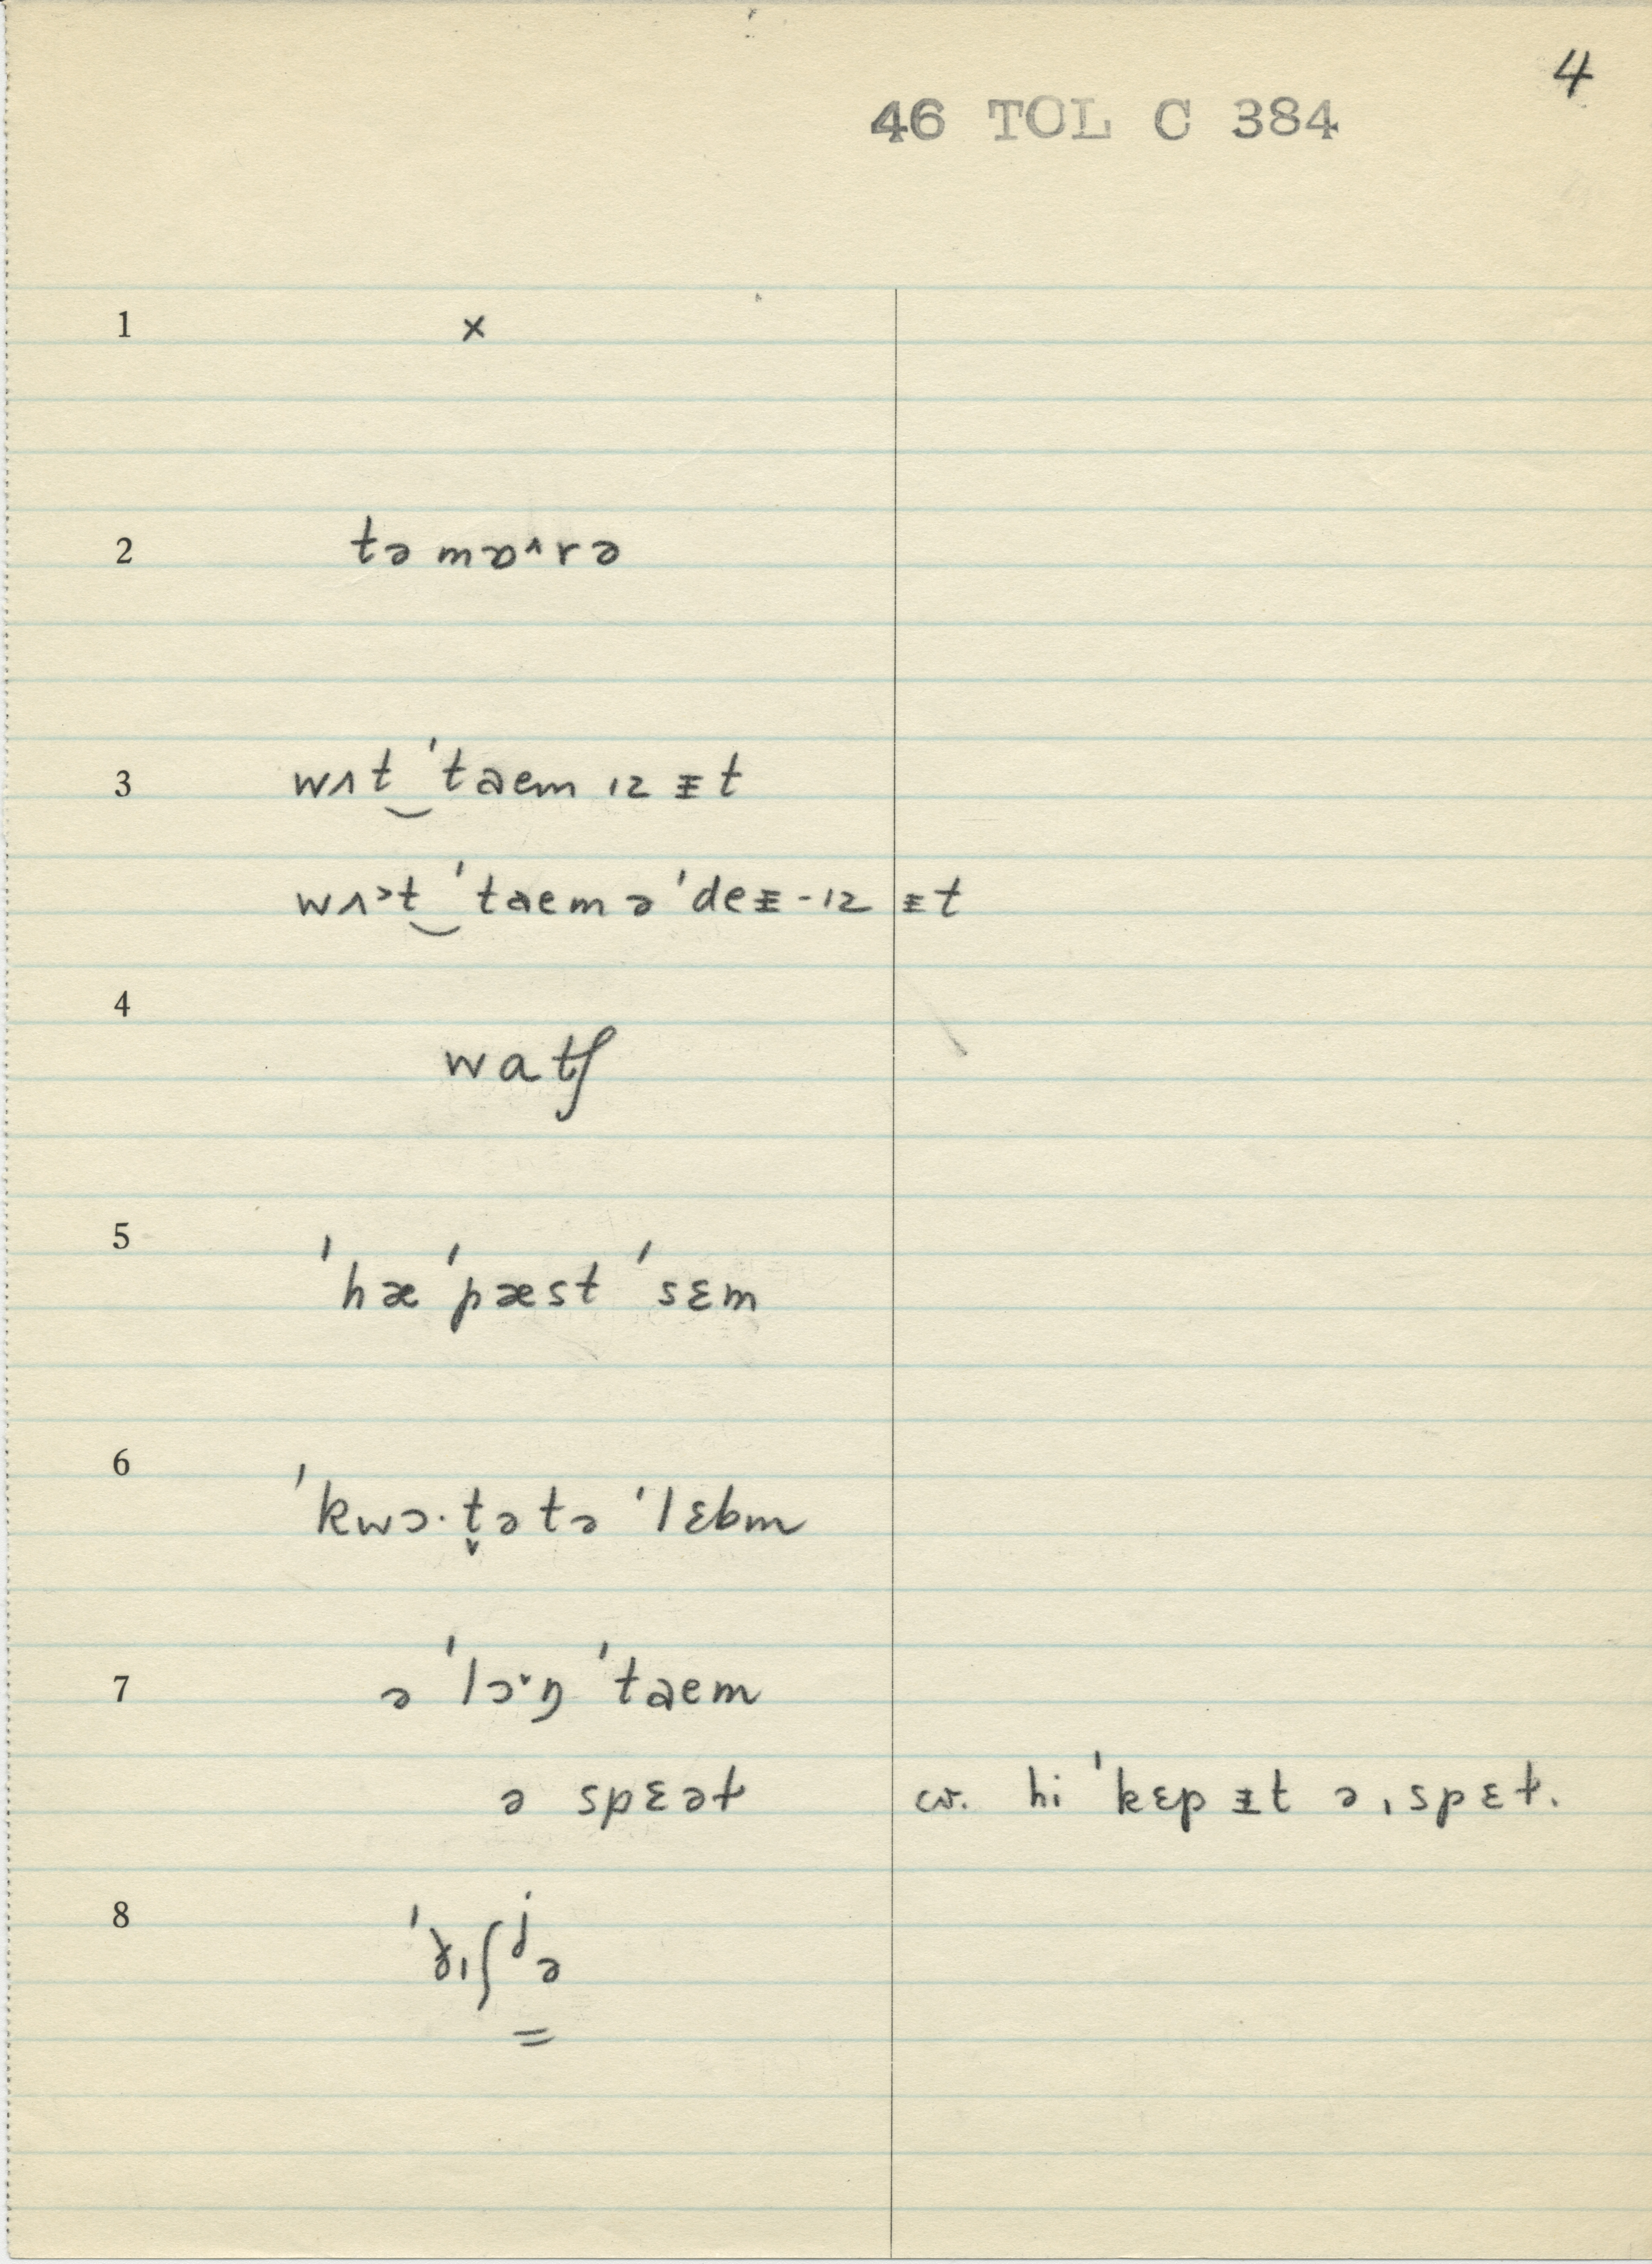 4
46 TOL C 384
1 ×
2 təmɒ˄rə
3 wʌt‿ˈtaem ɪz ᵻt
wʌ˃t‿ˈtaem ə ˈdeᵻ-ɪz ᵻt
4 watʃ
5 ˈhæˈpæst ˈsɛm
6 ˈkwɔ·t̬ətə ˈlɛbm
7 əˈlɔ˅ŋ ˈtaem
ə spɛəɫ cv. hi ˈkɛpᵻt əˌspɛɫ.
8 ʃʲə